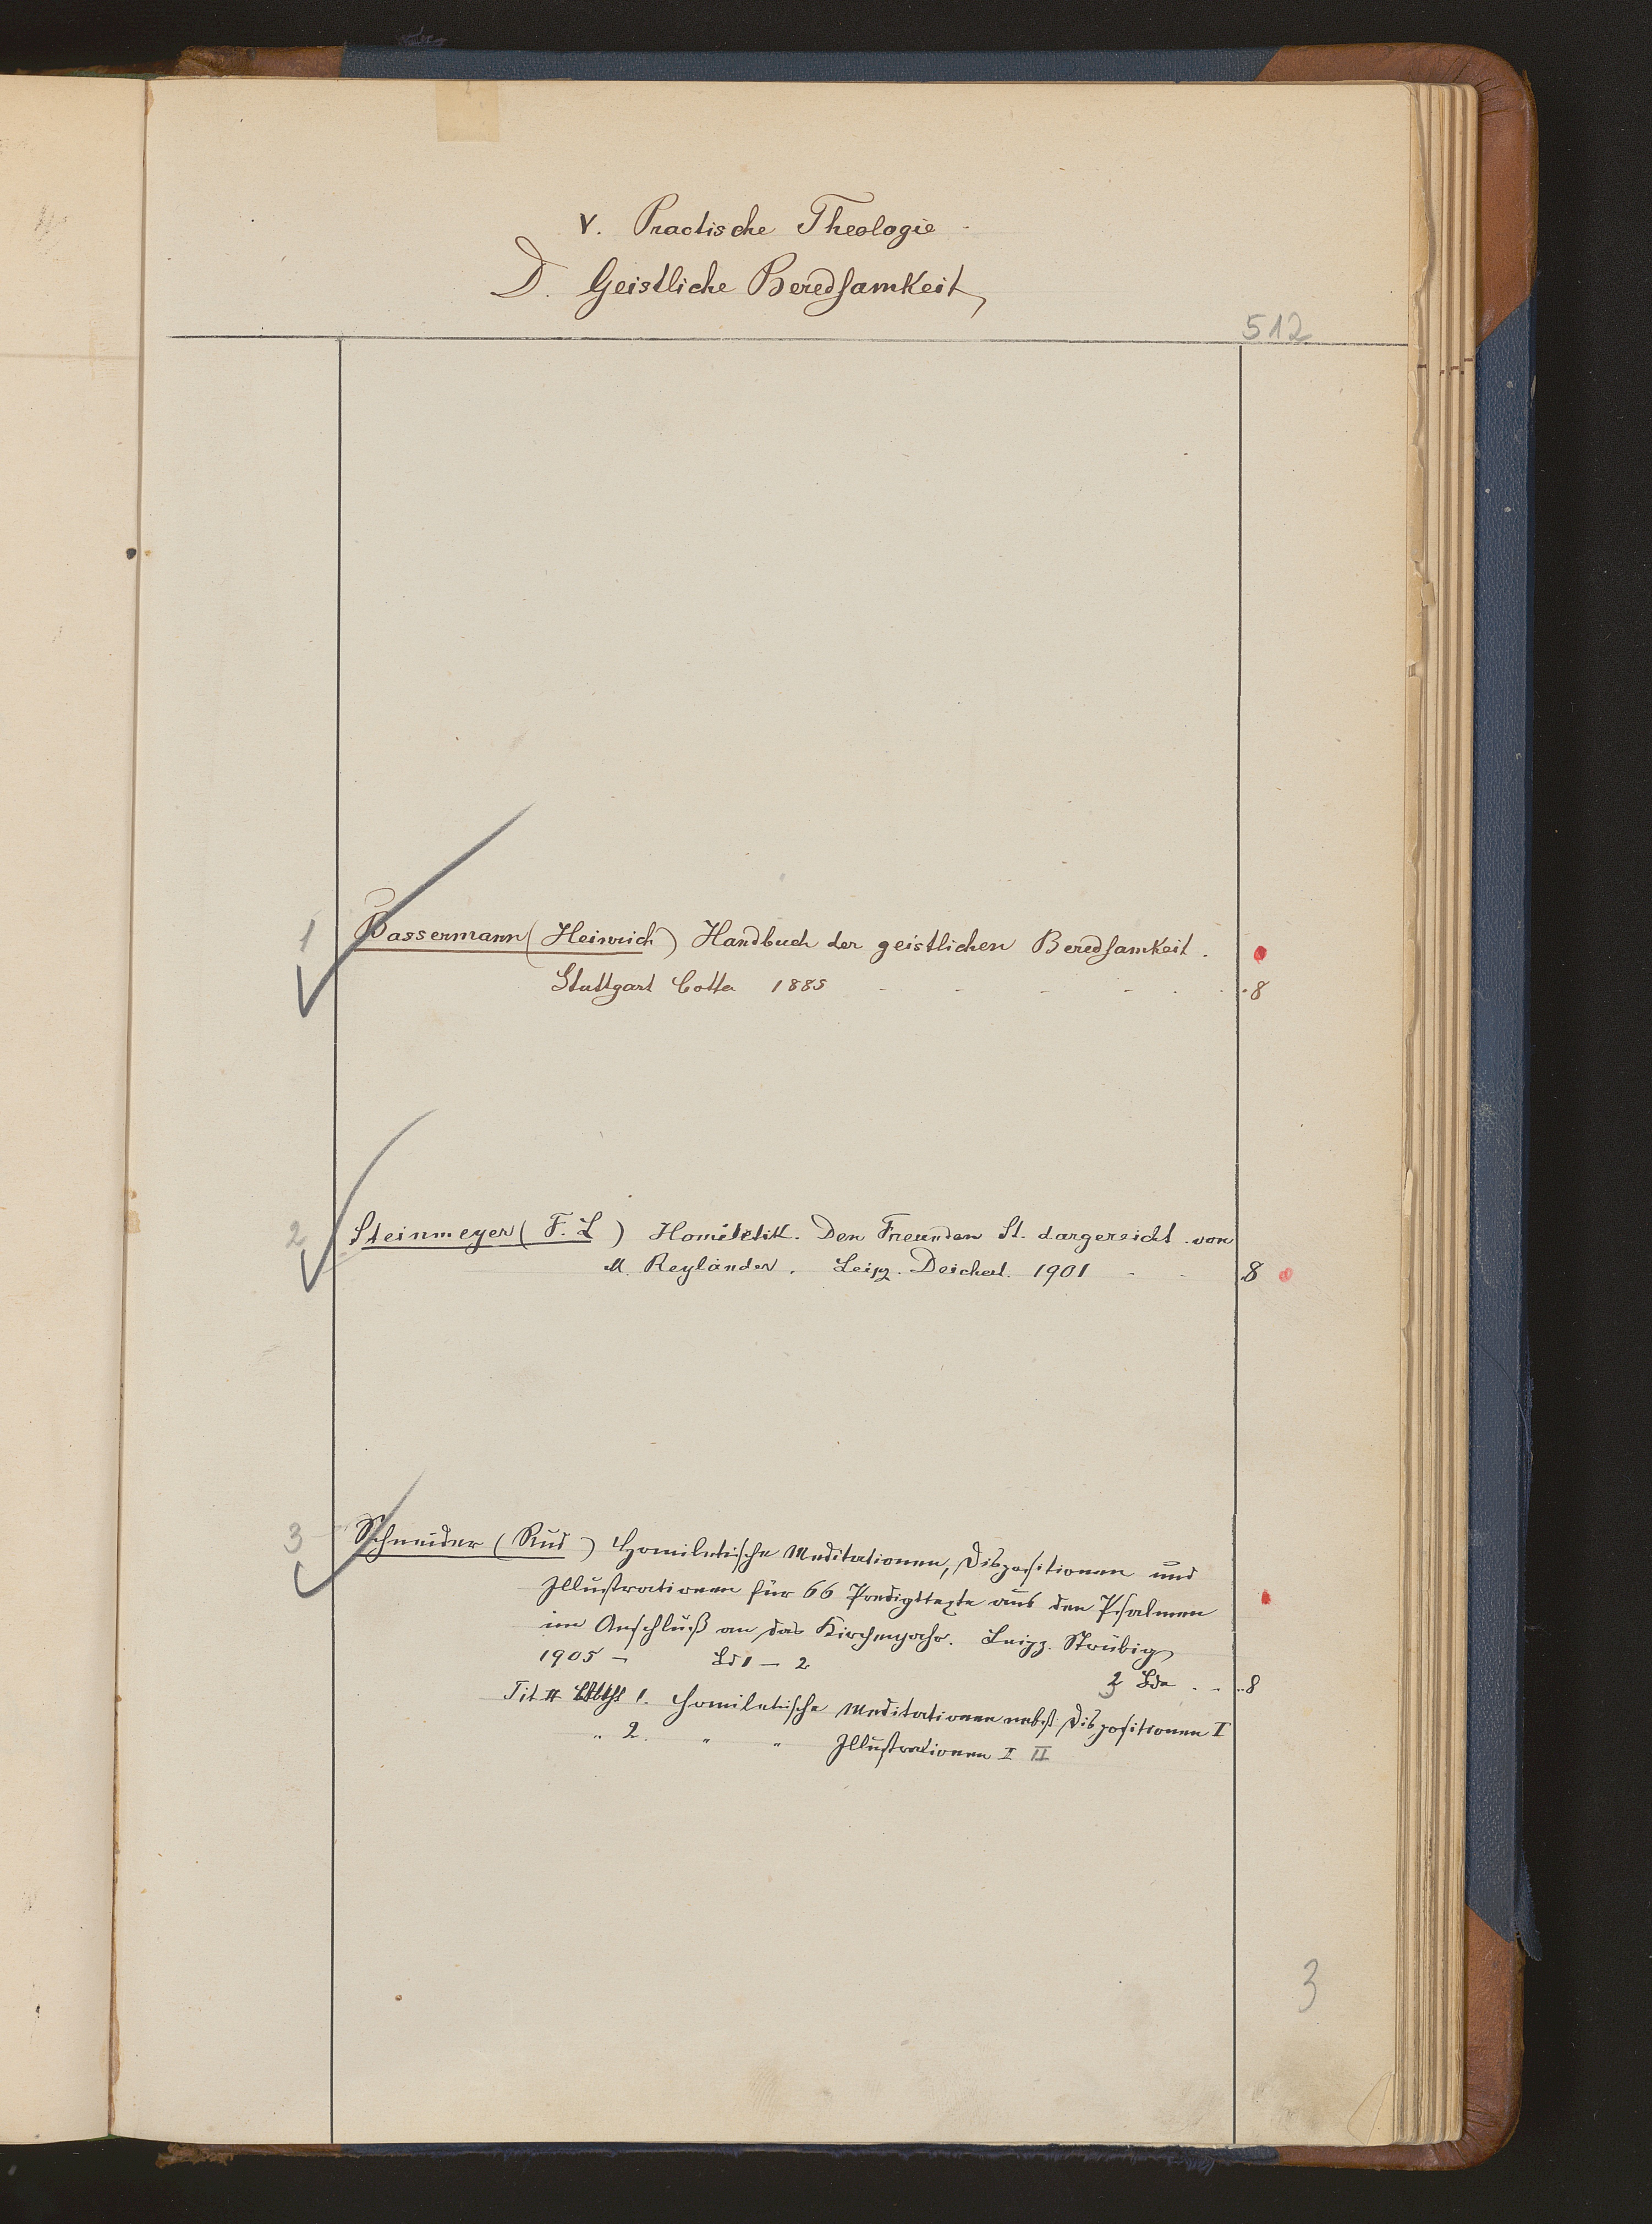 V. Practische Theologie
D. Geistliche Beredsamkeit
512
1 Bassermann (Heinrich) Handbuch der geistlichen Beredsamkeit.
Stuttgart Cotta 1885 - - - - - 8
2 Steinmeyer (F. L) Homiletik. Den Freunden St. dargereicht von
M. Reyländer. Leipz. Deichert. 1901 - - 8
3 Schneider (Rud) Homiletische Meditationen, Dispositionen und
Illustrationen für 66 Predigttexte aus den Psalmen
im Anschluß an das Kirchenjahr. Leipz. Strübig
1905 - Bd 1 - 2
2 Bde . - .. 8
Tit # 1. Homiletische Meditationen nebst Dispositionen I
" 2. " " Illustrationen I II
3